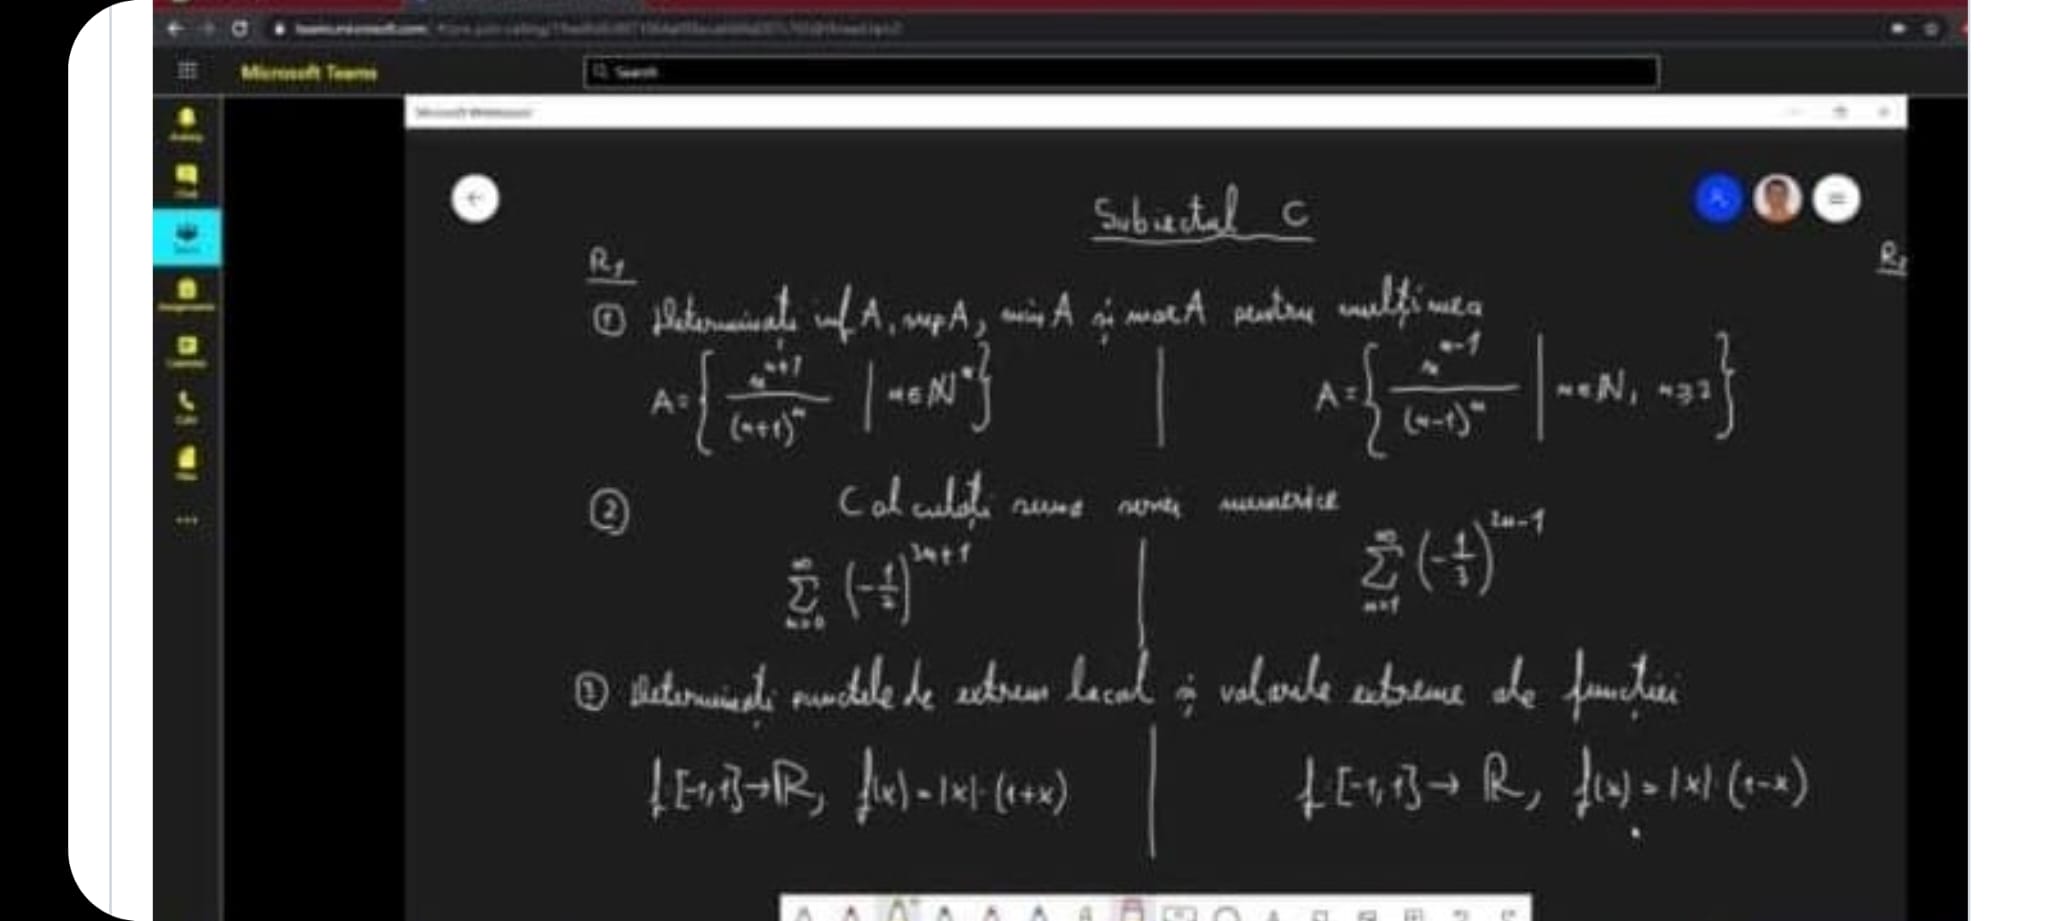 Microsoft Teams
Search
Microsoft Whiteboard
Subiectul C
R1
① Determinați inf A, sup A, min A și max A pentru mulțimea
A = { n^{n+1} / (n+1)^n | n∈ℕ* } | A = { n^{n-1} / (n-1)^n | n∈ℕ, n≥2 }
② Calculați suma seriei numerice
∑_{n=0}^{∞} (-1/2)^{3n+1} | ∑_{n=1}^{∞} (-1/3)^{2n-1}
③ Determinați punctele de extrem local și valorile extreme ale funcției
f:[-1,1]→ℝ, f(x)=|x|·(1+x) | f:[-1,1]→ℝ, f(x)=|x|·(1-x)